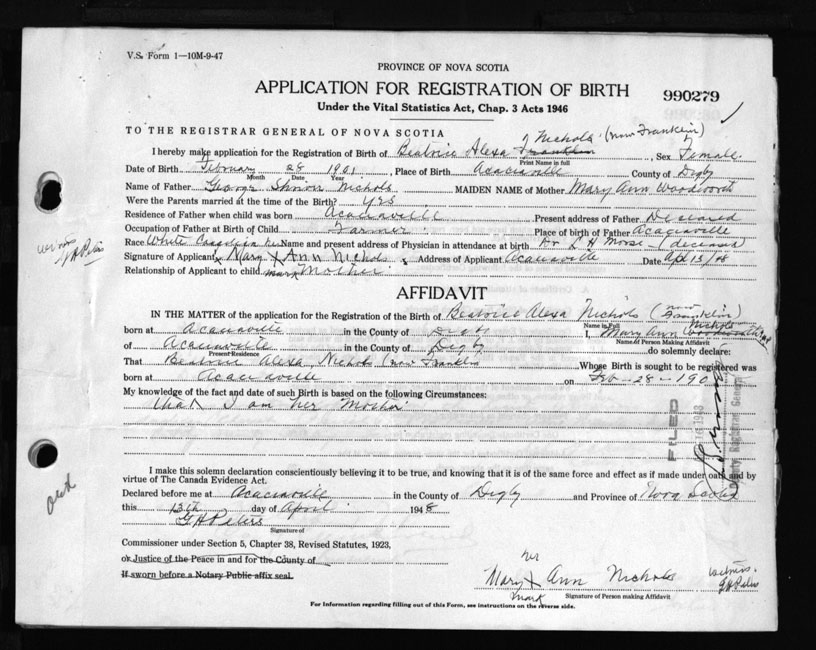 V.S. Form 1—10M-9-47
PROVINCE OF NOVA SCOTIA
APPLICATION FOR REGISTRATION OF BIRTH
990279
Under the Vital Statistics Act, Chap. 3 Acts 1946
TO THE REGISTRAR GENERAL OF NOVA SCOTIA
Nichols (now Franklin)
I hereby make application for the Registration of Birth of Beatrice Alexa Franklin, Sex Female.
Print Name in full
Date of Birth February 28 1901, Place of Birth Acaciaville County of Digby
Month Date Year
Name of Father George Nichols MAIDEN NAME of Mother Mary Ann
Were the Parents married at the time of the Birth? Yes
Residence of Father when child was born Acaciaville Present address of Father Deceased
Occupation of Father at Birth of Child Farmer Place of birth of Father Acaciaville
Race White Name and present address of Physician in attendance at birth Dr L H Morse — (deceased)
her
Signature of Applicant Mary X Ann Nichols Address of Applicant Acaciaville Date Apl 13/48
mark
Relationship of Applicant to child Mother
witness
AFFIDAVIT
IN THE MATTER of the application for Registration of the Birth of Beatrice Alexa Nichols (now Franklin)
Name in Full
born at Acaciaville in the County of Digby I, Mary Ann Nichols
Name of Person Making Affidavit
of Acaciaville in the County of Digby do solemnly declare:
Present Residence
That Beatrice Alexa Nichols (now Franklin Whose Birth is sought to be registered was
born at Acaciaville on Feb-28-190
My knowledge of the fact and date of such Birth is based on the following Circumstances:
that I am her Mother
FILED
Deputy Registrar General
I make this solemn declaration conscientiously believing it to be true, and knowing that it is of the same force and effect as if made under oath and by
virtue of The Canada Evidence Act.
Declared before me at Acaciaville in the County of Digby and Province of Nova Scotia
this 13th day of April 1948
Signature of
Commissioner under Section 5, Chapter 38, Revised Statutes, 1923,
or Justice of the Peace in and for the County of
If sworn before a Notary Public affix seal.
her
Mary X Ann Nichols
mark
witness
Signature of Person making Affidavit
For Information regarding filling out of this Form, see instructions on the reverse side.